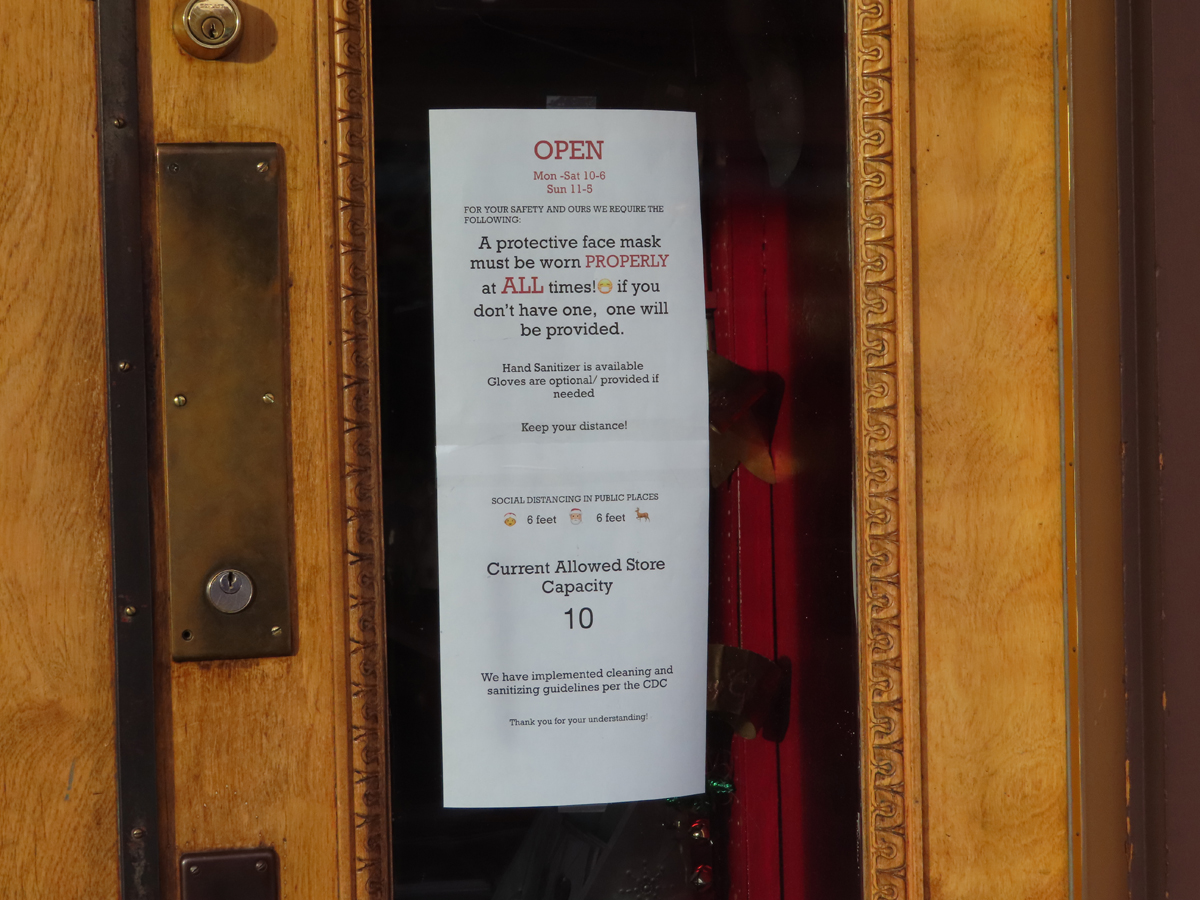 OPEN
Mon -Sat 10-6
Sun 11-5
FOR YOUR SAFETY AND OURS WE REQUIRE THE
FOLLOWING:
A protective face mask
must be worn PROPERLY
at ALL times!😷 if you
don't have one, one will
be provided.
Hand Sanitizer is available
Gloves are optional/ provided if
needed
Keep your distance!
SOCIAL DISTANCING IN PUBLIC PLACES
6 feet 6 feet
Current Allowed Store
Capacity
10
We have implemented cleaning and
sanitizing guidelines per the CDC
Thank you for your understanding!